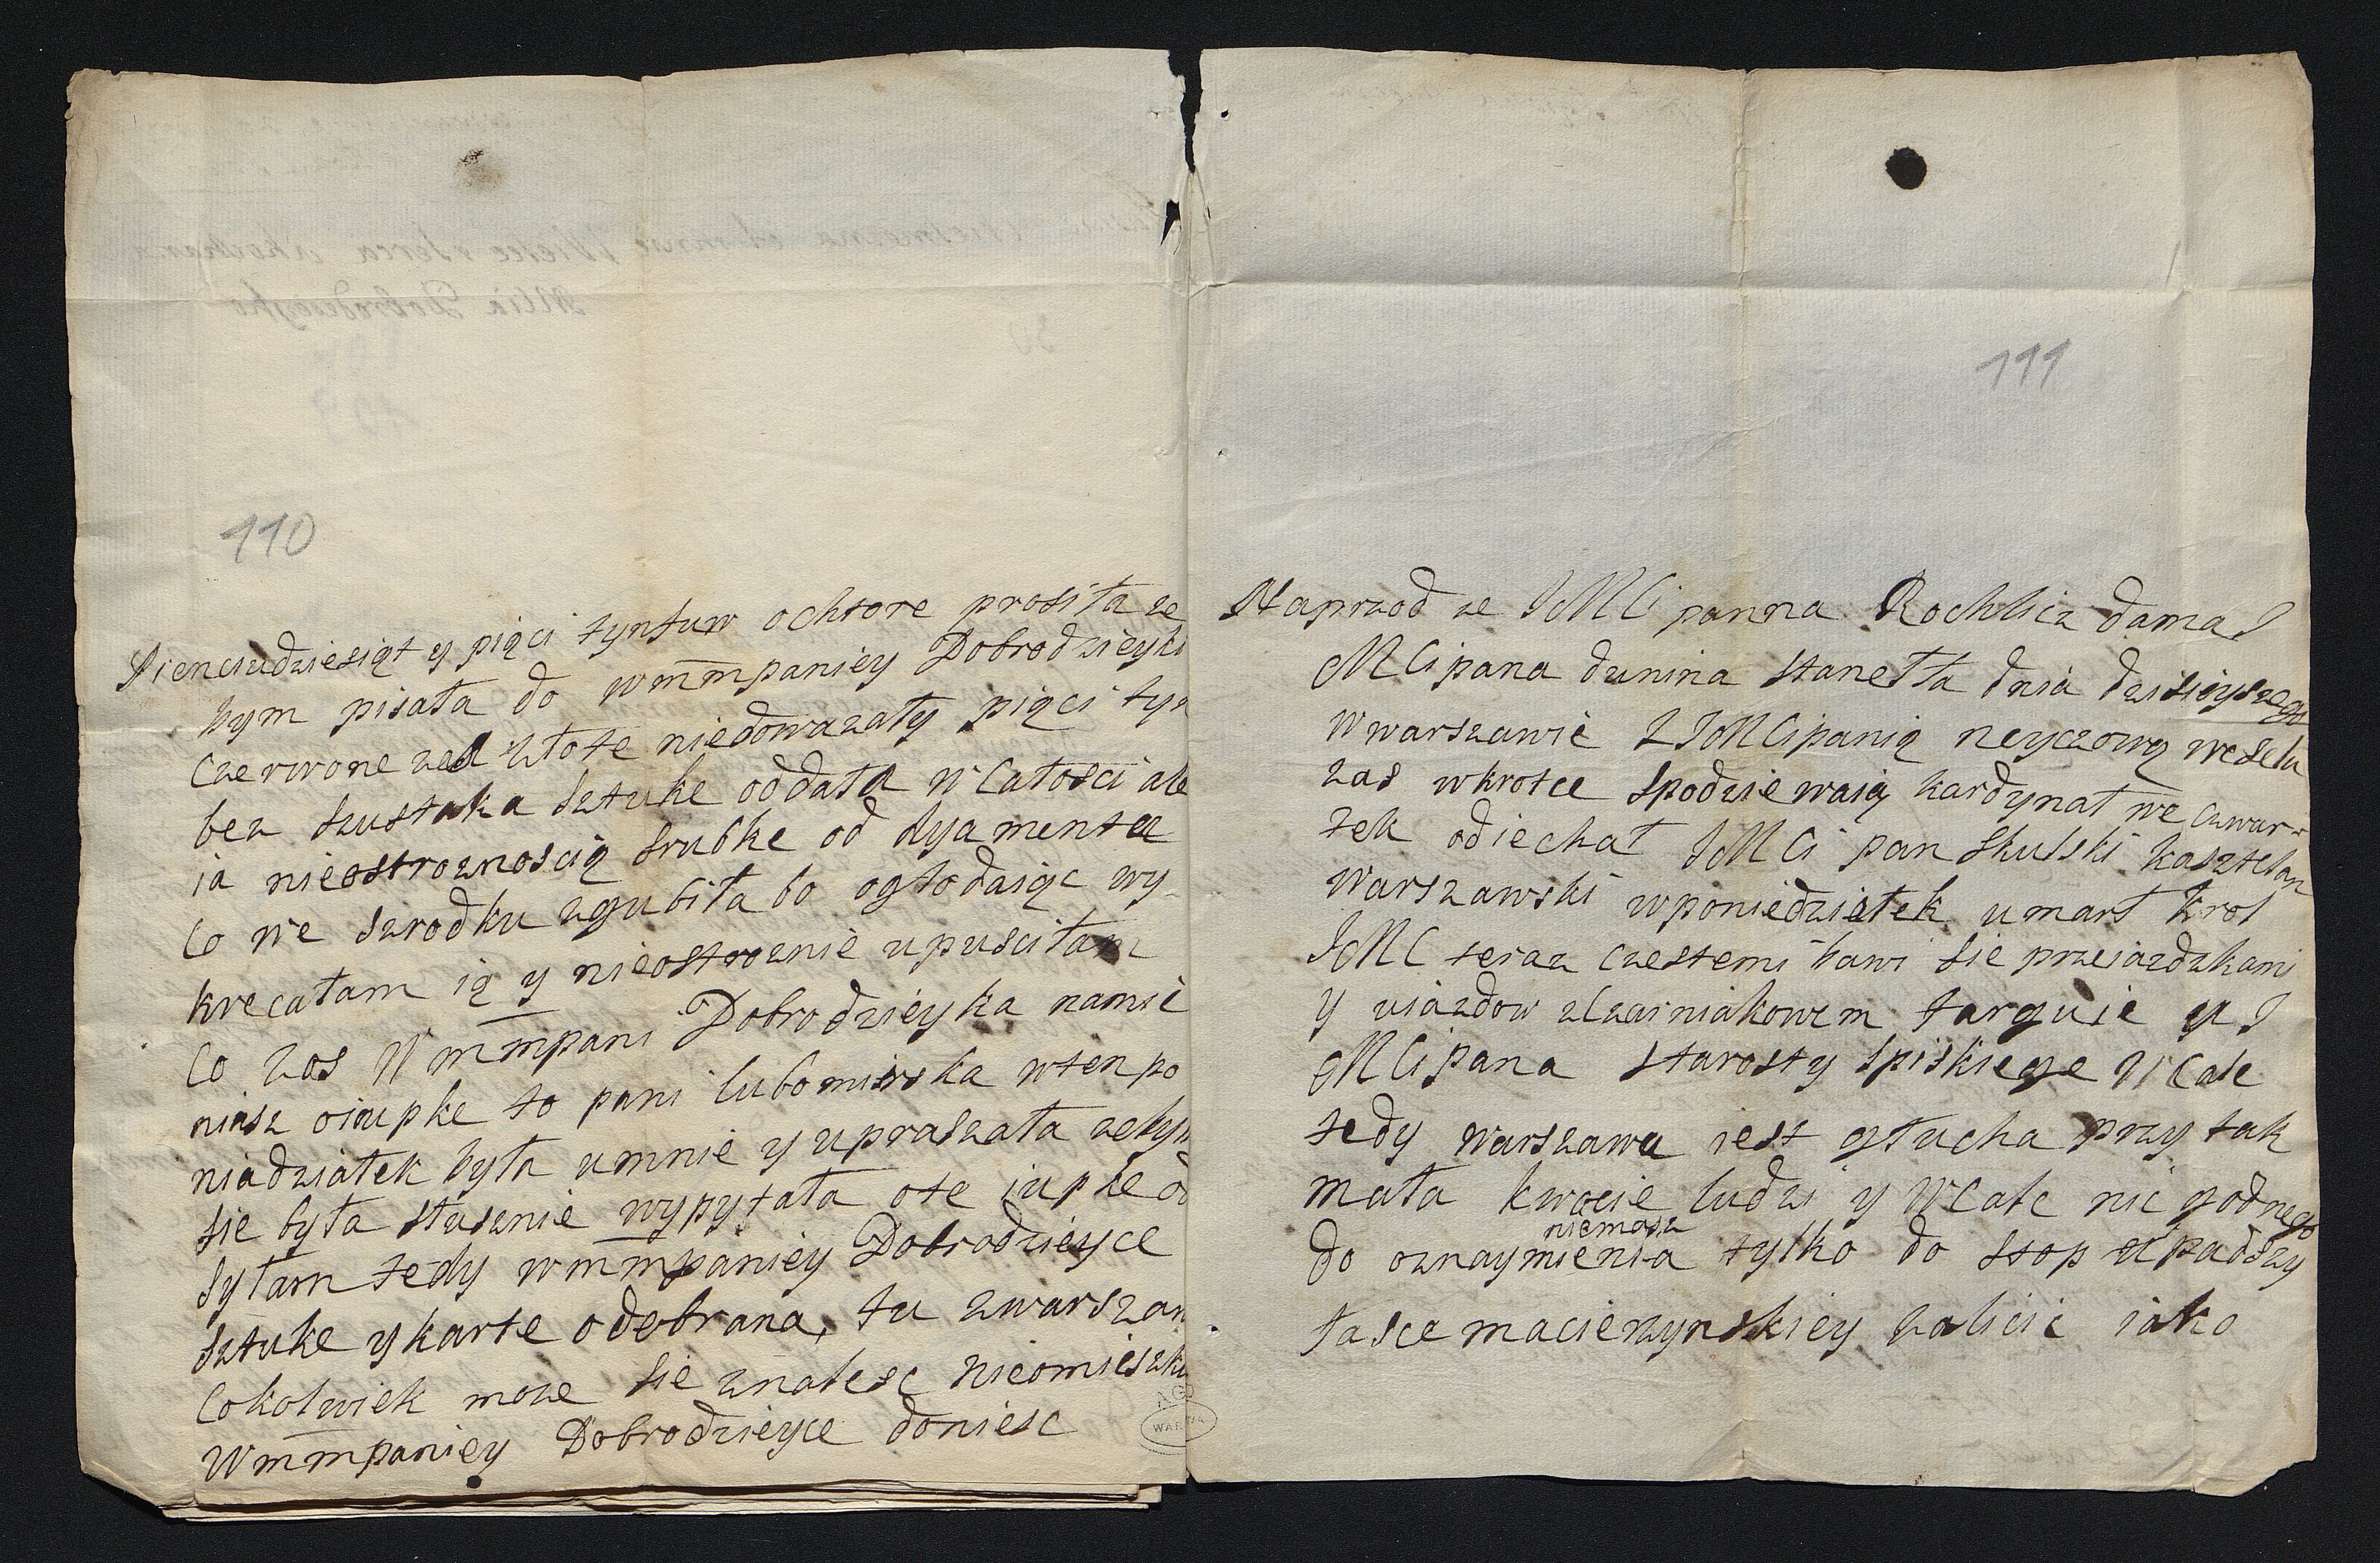 110
Piencudziesiąt y pięci tynfuw ochtore prosiła ze
bym pisała do wmmpaniey Dobrodzieyki
czerwone złote niedowazały pięci tyn
bez szustaka sztuke oddała w całosci ale
ia nieostroznoscią srubke od dyamentu
co we szrodku zgubiła bo oglodaiąc wy
krecałam ią y nieostroznie upusciłam
co zas Wmmpani Dobrodzieyka namie
niasz oiupke to pani lubomirska wten po
niadziałek była umnie y upraszała zeby
sie była słusznie wypytała ote iupke od
syłam tedy wmmpaniey Dobrodzieyce
sztuke y karte odebrana, tu zwarszaw
cokolwiek moze sie znalesc nieomieszka
Wmmpaniey Dobrodzieyce doniesc
111
Naprzod ze JMCi panna Rochlicz dama J
MCi pana dunina stanełła dnia dzisieyszego
W warszawie Z JMCi panią neyczową wesela
zas wkrotce spodziewaią kardynał we czwar-
tek odiechał JMCi pan Skulski kasztelan
warszawski wponiedziełek umarł krol
JMC teraz czestemi bawi sie przeiazdzkami
y uiazdow złzainiakowem targuie u J
MCi pana starosty spiskiege Wcale
tedy warszawa iest głucha przy tak
mała kwocie ludzi y Wcale nic godnego
niemasz
do oznaymienia tylko do stop upadszy
łasce macierzynskiey zalicic iako